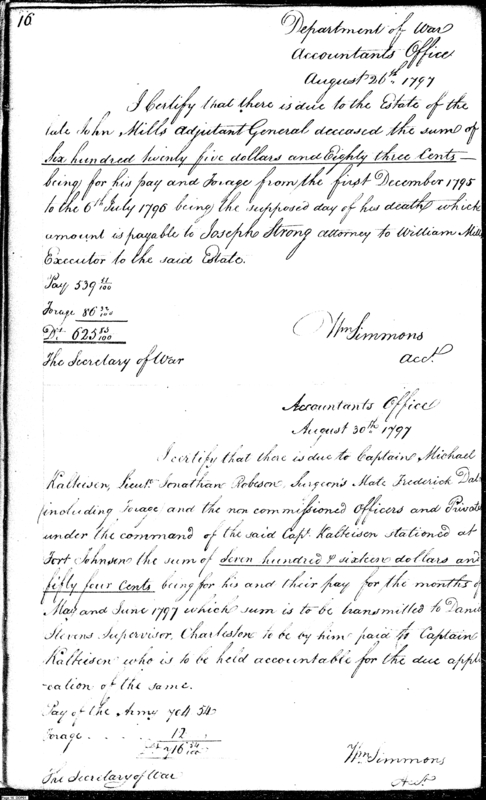 16
Department of War
Accountants Office
August 26th 1797
I Certify that there is due to the Estate of the
late John Mills Adjutant General deceased the sum of
Six hundred twenty five dollars and Eighty three Cents
being for his pay and Forage from the first December 1795
to the 6th July 1796 being the supposed day of his death which
amount is payable to Joseph Strong attorney to William Mills
Executor to the said Estate.
Pay 539 51/100
Forage 86 32/100
Ds. 625 83/100
Wm Simmons
Acct.
The Secretary of War
Accountants Office
August 30th 1797
I certify that there is due to Captain Michael
Kalteisen, Lieut. Jonathan Robeson, Surgeon's Mate Frederick
including Forage and the non commissioned Officers and Privates
under the command of the said Capt. Kalteisen stationed at
Fort Johnson the sum of Seven hundred & sixteen dollars and
fifty four Cents being for his and their pay for the months of
May and June 1797 which sum is to be transmitted to Daniel
Stevens Supervisor, Charleston to be by him paid to Captain
Kalteisen who is to be held accountable for the due appli
-cation of the same.
Pay of the Army 704 54
Forage . . . . . 12 .
716 54/100
Wm Simmons
Acct.
The Secretary of War